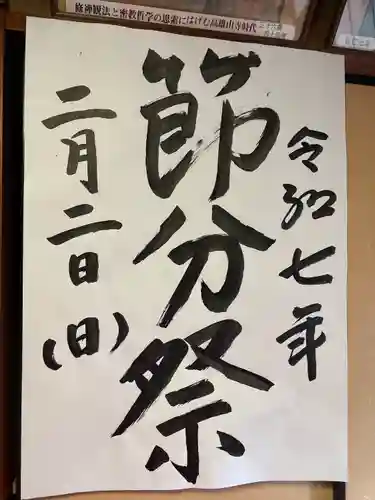 修禅観法と密教哲学の思索にはげむ高雄山寺時代
令和七年
節分祭
二月二日(日)